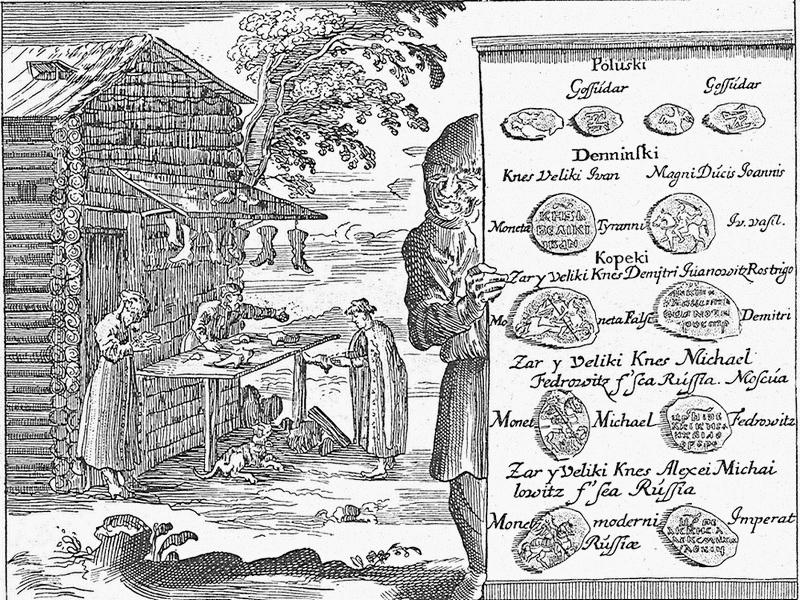 Poluski
Gossúdar Gossúdar
Denninski
Knes Veliki Ivan Magni Dúcis Ioannis
Moneta КНЯЗЬ Tyranni Iv. vasil.
ВЕЛIКI
IВАН
Kopeki
Zar y Veliki Knes Demjtri Iuanowitz Rostrigo
Mo neta Falsc Demitri
Zar y Veliki Knes Michael
Fedrowitz f'sea Rússia. Moscúa
Monet Michael Fedrowitz
Zar y Veliki Knes Alexei Michai
lowitz f'sea Rússia
Monet moderni Imperat
Rússiæ